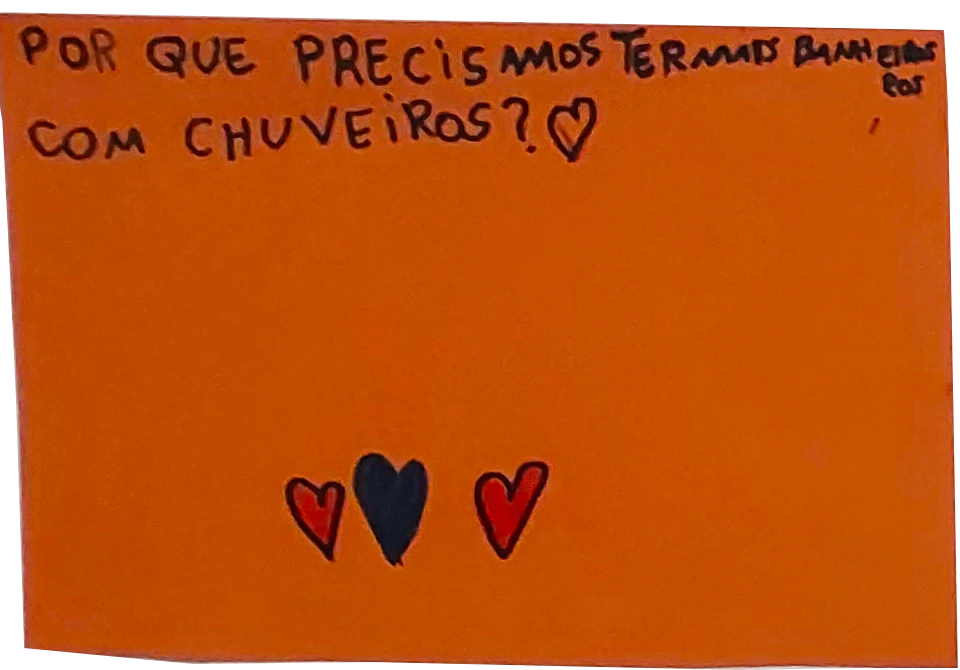 POR QUE PRECISAMOS TER MAIS BANHEIROS
COM CHUVEIROS?